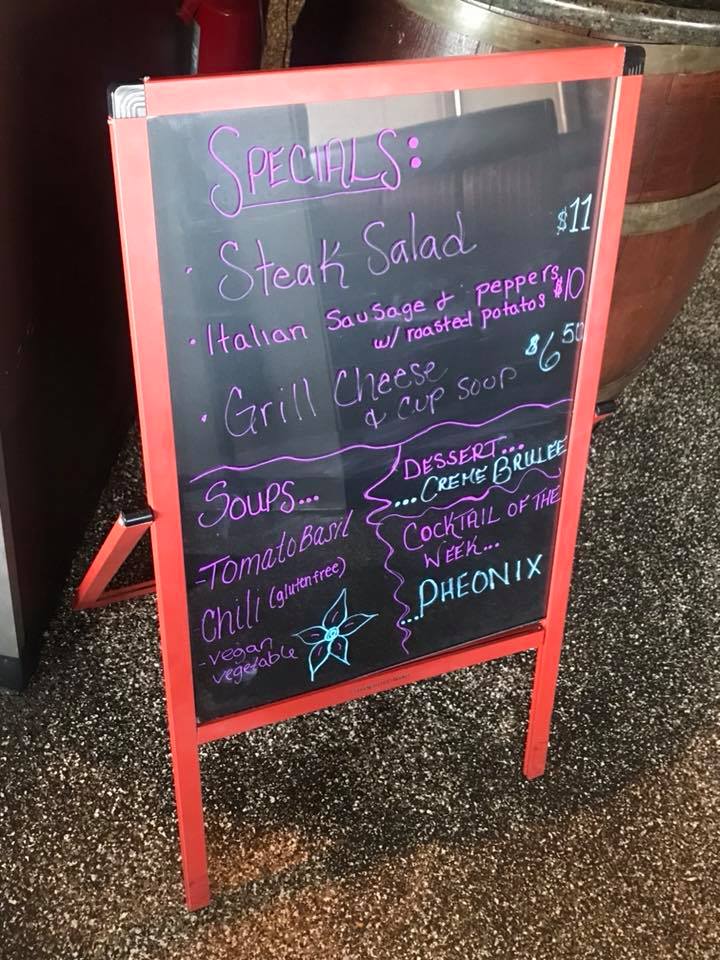 SPECIALS:
· Steak Salad $11
· Italian Sausage & peppers
w/ roasted potatos $10
· Grill Cheese
& cup soup $6 50
Soups...
-Tomato Basil
Chili (gluten free)
-vegan
vegetable
DESSERT...
...CREME BRULEE
COCKTAIL OF THE
WEEK...
...PHEONIX